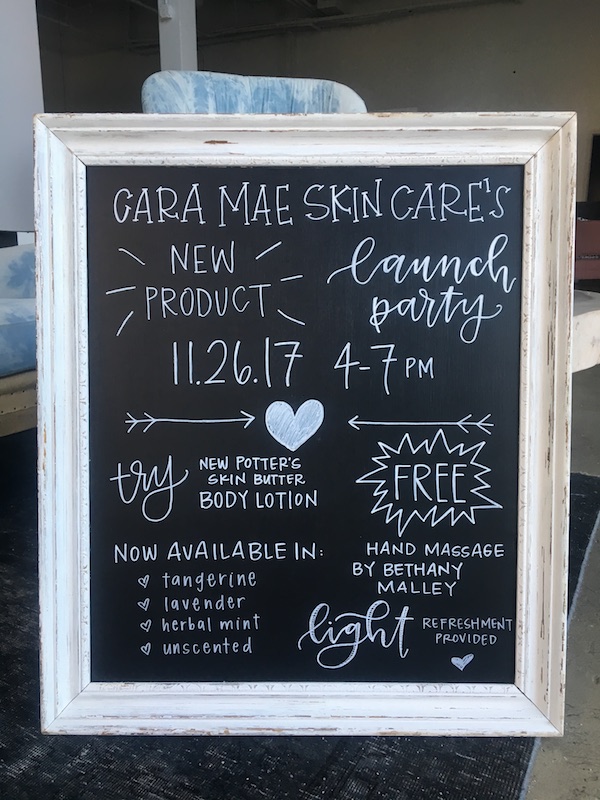 CARA MAE SKIN CARE's
NEW
PRODUCT
launch
party
11.26.17 4-7 PM
try
NEW POTTER'S
SKIN BUTTER
BODY LOTION
FREE
HAND MASSAGE
BY BETHANY
MALLEY
NOW AVAILABLE IN:
tangerine
lavender
herbal mint
unscented
light
REFRESHMENT
PROVIDED